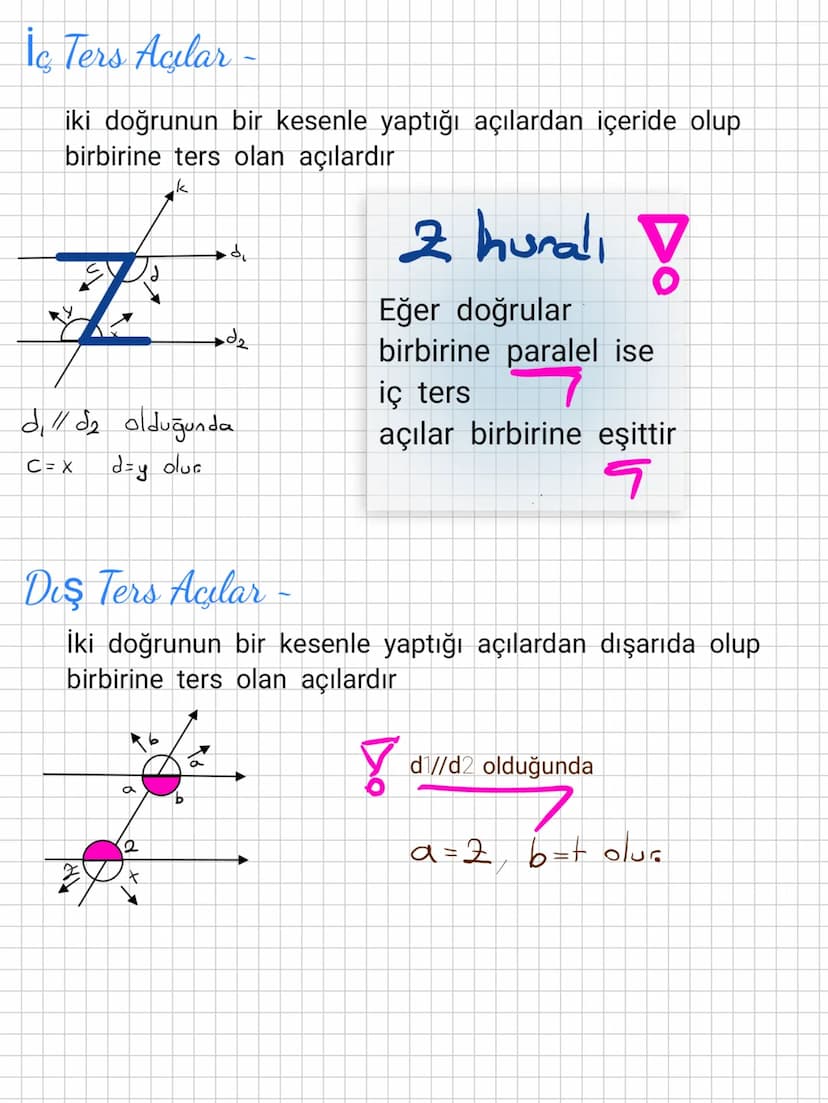 İç Ters Açılar -
iki doğrunun bir kesenle yaptığı açılardan içeride olup
birbirine ters olan açılardır
k
d₁
c
d
y
x
d₂
d₁ // d₂ olduğunda
c = x d=y olur
Z kuralı !
Eğer doğrular
birbirine paralel ise
iç ters
açılar birbirine eşittir
Dış Ters Açılar -
İki doğrunun bir kesenle yaptığı açılardan dışarıda olup
birbirine ters olan açılardır
b
a
a
b
z
z
! d1//d2 olduğunda
a = z, b=t olur.